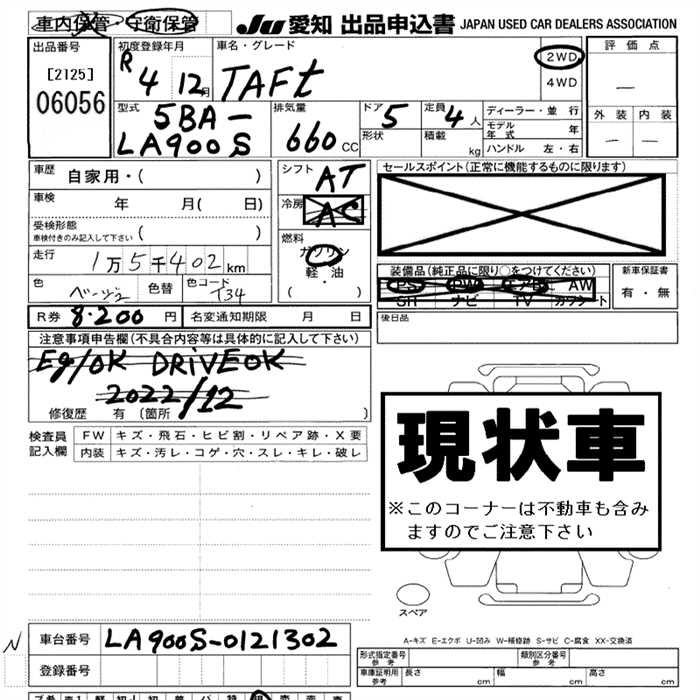 車内保管 ・ 守衛保管
JU 愛知 出品申込書 JAPAN USED CAR DEALERS ASSOCIATION
出品番号
[2125]
06056
初度登録年月
R 4 12月
車名・グレード
TAFt
2WD
4WD
評 価 点
—
外 装 内 装
— —
型式
5BA-
LA900S
排気量
660 CC
ドア 5
形状
定員 4 人
積載 kg
ディーラー・並 行
モデル年式 年
ハンドル 左・右
車歴 自家用・( )
車検 年 月( 日)
受検形態
車検付きのみ記入して下さい ( )
走行 1万5千402km
色 ベージュ 色替 色コード T34
シフト AT
冷房 AC
燃料
ガソリン
軽・油
( )
セールスポイント(正常に機能するものに限ります)
装備品(純正品に限り○をつけてください)
PS PW エアB AW
SH ナビ TV カワシート
新車保証書
有・無
後日品
R券 8.200 円 名変通知期限 月 日
注意事項申告欄(不具合内容等は具体的に記入して下さい)
Eg/OK DRiVEOK
2022/12
修復歴 有 〔箇所 〕
現状車
※このコーナーは不動車も含み
ますのでご注意下さい
検査員
記入欄
FW キズ・飛石・ヒビ割・リペア跡・X要
内装 キズ・汚レ・コゲ・穴・スレ・キレ・破レ
スペア
A-キズ E-エクボ U-凹み W-補修跡 S-サビ C-腐食 XX-交換済
N
車台番号 LA900S-0121302
登録番号
形式指定番号
参 考
類別区分番号
参 考
車庫証明用
参 考
長さ cm 幅 cm 高さ cm